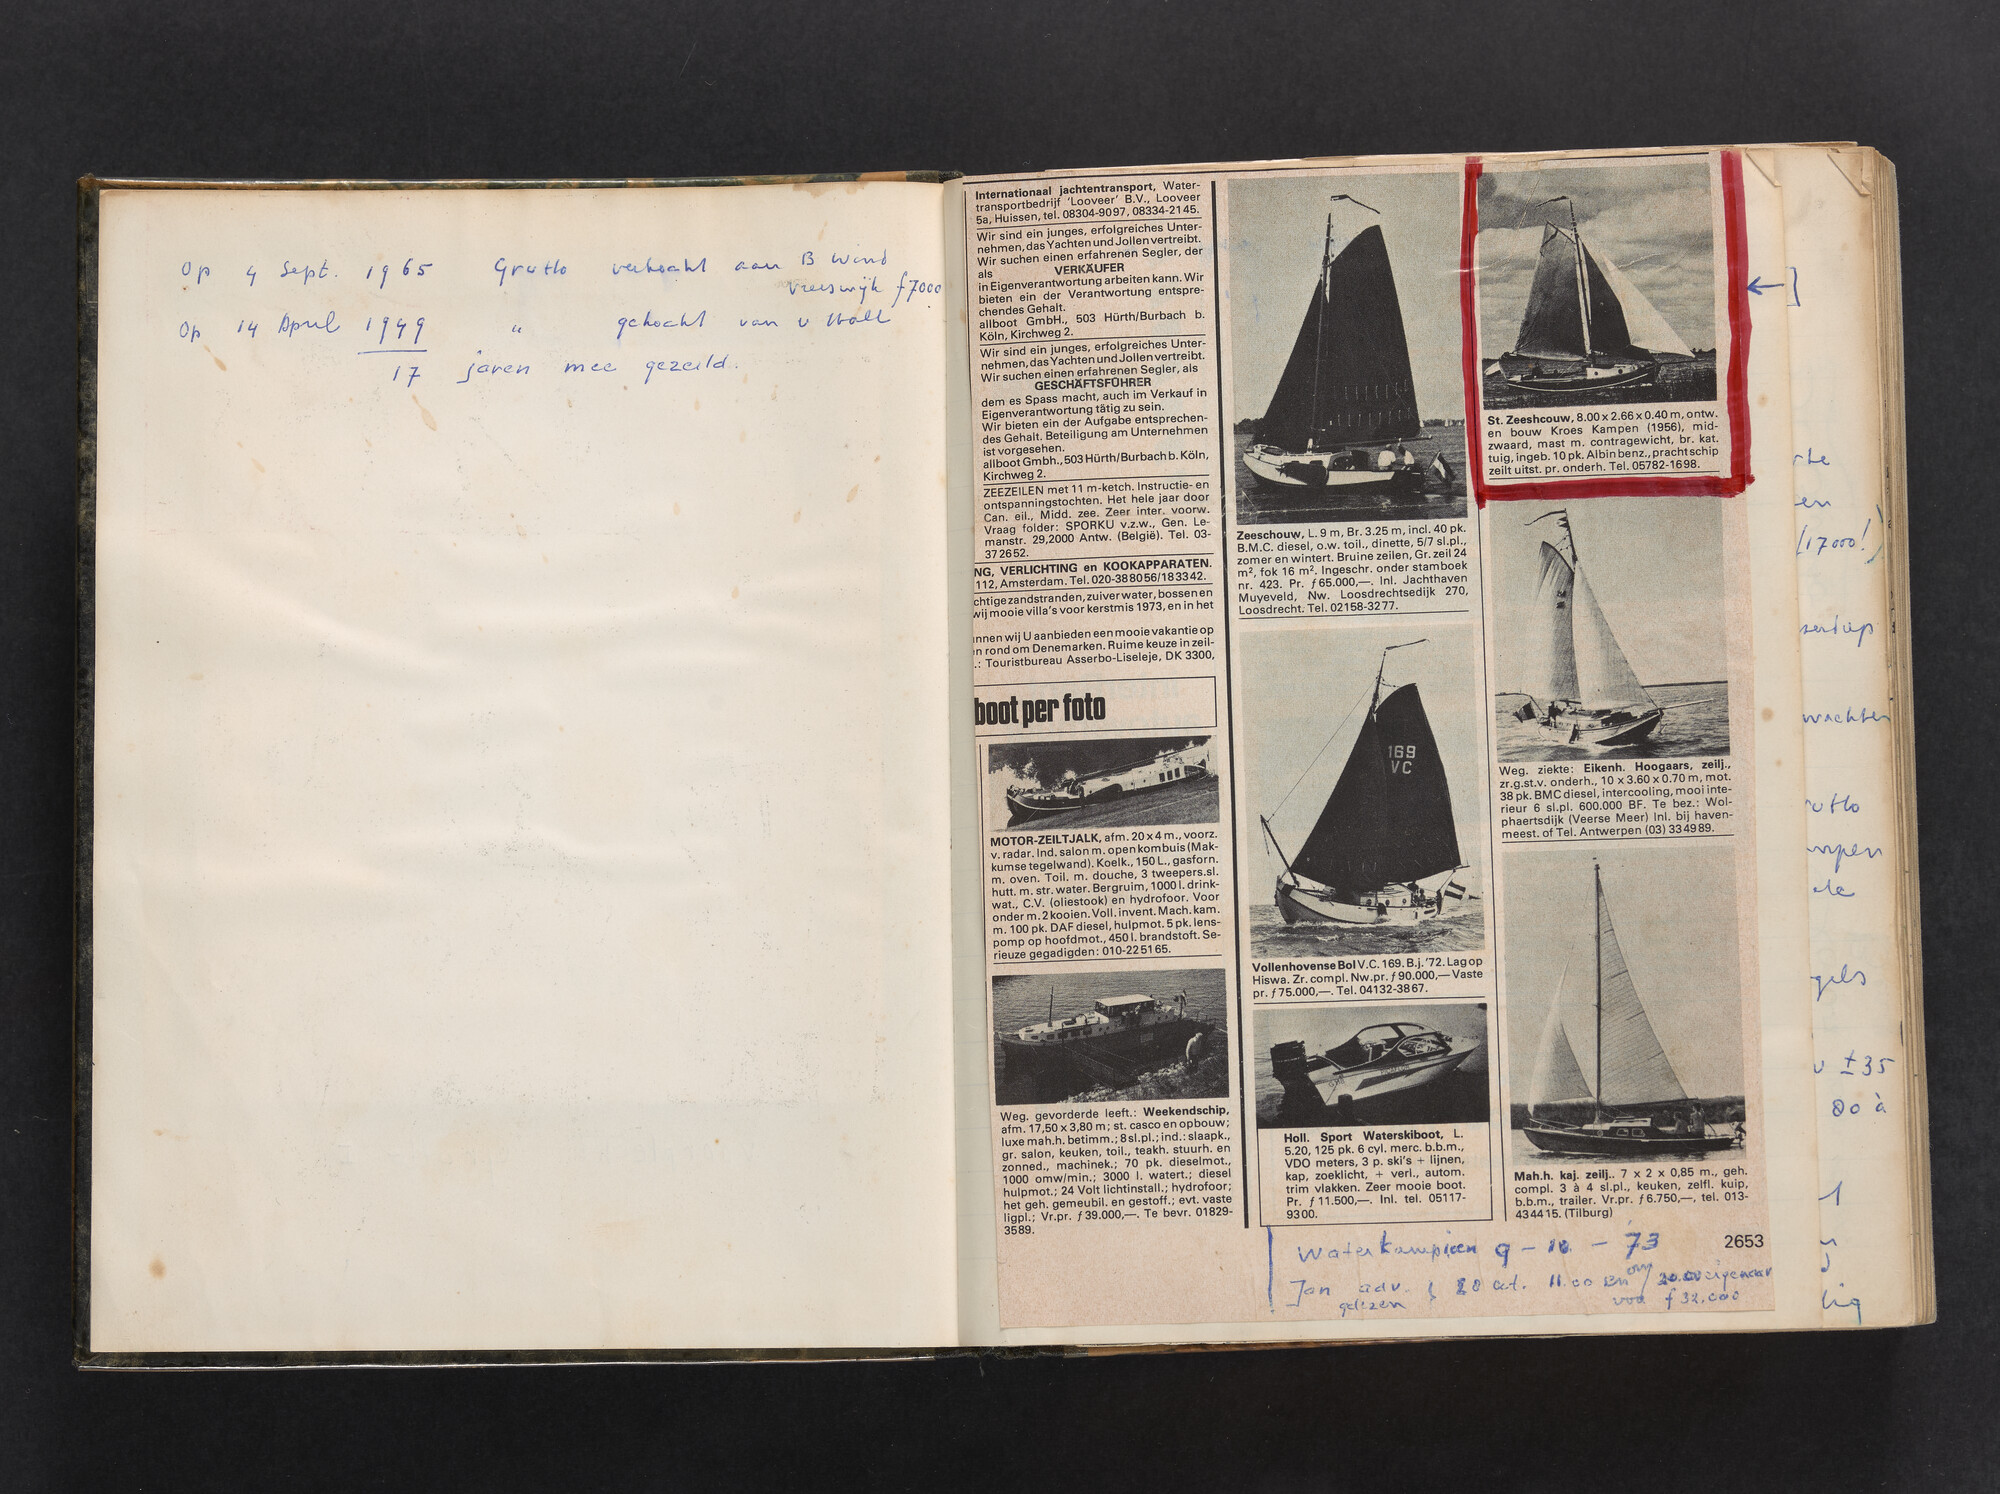 Op 4 Sept. 1965 Grutto verkocht aan B Wind
Vreeswijk f 7000
Op 14 April 1949 " gekocht van v Wall
17 jaren mee gezeild.
Internationaal jachtentransport, Water-
transportbedrijf 'Looveer' B.V., Looveer
5a, Huissen, tel. 08304-9097, 08334-2145.
Wir sind ein junges, erfolgreiches Unter-
nehmen, das Yachten und Jollen vertreibt.
Wir suchen einen erfahrenen Segler, der
als VERKÄUFER
in Eigenverantwortung arbeiten kann. Wir
bieten ein der Verantwortung entspre-
chendes Gehalt.
allboot GmbH., 503 Hürth/Burbach b.
Köln, Kirchweg 2.
Wir sind ein junges, erfolgreiches Unter-
nehmen, das Yachten und Jollen vertreibt.
Wir suchen einen erfahrenen Segler, als
GESCHÄFTSFÜHRER
dem es Spass macht, auch im Verkauf in
Eigenverantwortung tätig zu sein.
Wir bieten ein der Aufgabe entsprechen-
des Gehalt. Beteiligung am Unternehmen
ist vorgesehen.
allboot Gmbh., 503 Hürth/Burbach b. Köln,
Kirchweg 2.
ZEEZEILEN met 11 m-ketch. Instructie- en
ontspanningstochten. Het hele jaar door
Can. eil., Midd. zee. Zeer inter. voorw.
Vraag folder: SPORKU v.z.w., Gen. Le-
manstr. 29, 2000 Antw. (België). Tel. 03-
372652.
NG, VERLICHTING en KOOKAPPARATEN.
112, Amsterdam. Tel. 020-388056/183342.
chtige zandstranden, zuiver water, bossen en
wij mooie villa's voor kerstmis 1973, en in het
nnen wij U aanbieden een mooie vakantie op
n rond om Denemarken. Ruime keuze in zeil-
.: Touristbureau Asserbo-Liseleje, DK 3300,
boot per foto
MOTOR-ZEILTJALK, afm. 20 x 4 m., voorz.
v. radar. Ind. salon m. open kombuis (Mak-
kumse tegelwand). Koelk., 150 L., gasforn.
m. oven. Toil. m. douche, 3 tweepers.sl.
hutt. m. str. water. Bergruim, 1000 l. drink-
wat., C.V. (oliestook) en hydrofoor. Voor
onder m. 2 kooien. Voll. invent. Mach. kam.
m. 100 pk. DAF diesel, hulpmot. 5 pk. lens-
pomp op hoofdmot., 450 l. brandstoft. Se-
rieuze gegadigden: 010-225165.
Weg. gevorderde leeft.: Weekendschip,
afm. 17,50 x 3,80 m; st. casco en opbouw;
luxe mah.h. betimm.; 8 sl.pl.; ind.: slaapk.,
gr. salon, keuken, toil., teakh. stuurh. en
zonned., machinek.; 70 pk. dieselmot.,
1000 omw/min.; 3000 l. watert.; diesel
hulpmot.; 24 Volt lichtinstall.; hydrofoor;
het geh. gemeubil. en gestoff.; evt. vaste
ligpl.; Vr.pr. f 39.000,—. Te bevr. 01829-
3589.
Zeeschouw, L. 9 m, Br. 3.25 m, incl. 40 pk.
B.M.C. diesel, o.w. toil., dinette, 5/7 sl.pl.,
zomer en wintert. Bruine zeilen, Gr. zeil 24
m², fok 16 m². Ingeschr. onder stamboek
nr. 423. Pr. f 65.000,—. Inl. Jachthaven
Muyeveld, Nw. Loosdrechtsedijk 270,
Loosdrecht. Tel. 02158-3277.
169
VC
Vollenhovense Bol V.C. 169. B.j. '72. Lag op
Hiswa. Zr. compl. Nw.pr. f 90.000,— Vaste
pr. f 75.000,—. Tel. 04132-3867.
Holl. Sport Waterskiboot, L.
5.20, 125 pk. 6 cyl. merc. b.b.m.,
VDO meters, 3 p. ski's + lijnen,
kap, zoeklicht, + verl., autom.
trim vlakken. Zeer mooie boot.
Pr. f 11.500,—. Inl. tel. 05117-
9300.
St. Zeeshcouw, 8.00 x 2.66 x 0.40 m, ontw.
en bouw Kroes Kampen (1956), mid-
zwaard, mast m. contragewicht, br. kat.
tuig, ingeb. 10 pk. Albin benz., prachtschip
zeilt uitst. pr. onderh. Tel. 05782-1698.
Weg. ziekte: Eikenh. Hoogaars, zeilj.,
zr.g.st.v. onderh., 10 x 3.60 x 0.70 m, mot.
38 pk. BMC diesel, intercooling, mooi inte-
rieur 6 sl.pl. 600.000 BF. Te bez.: Wol-
phaertsdijk (Veerse Meer) Inl. bij haven-
meest. of Tel. Antwerpen (03) 334989.
Mah.h. kaj. zeilj.. 7 x 2 x 0,85 m., geh.
compl. 3 à 4 sl.pl., keuken, zelfl. kuip,
b.b.m., trailer. Vr.pr. f 6.750,—, tel. 013-
434415. (Tilburg)
2653
Waterkampioen 9 - 10 - 73
Jan adv. 28 oct. 11.00 eigenaar
gelezen voor f 32.000
en
(17000!)
wachten
gels
± 35
80 à